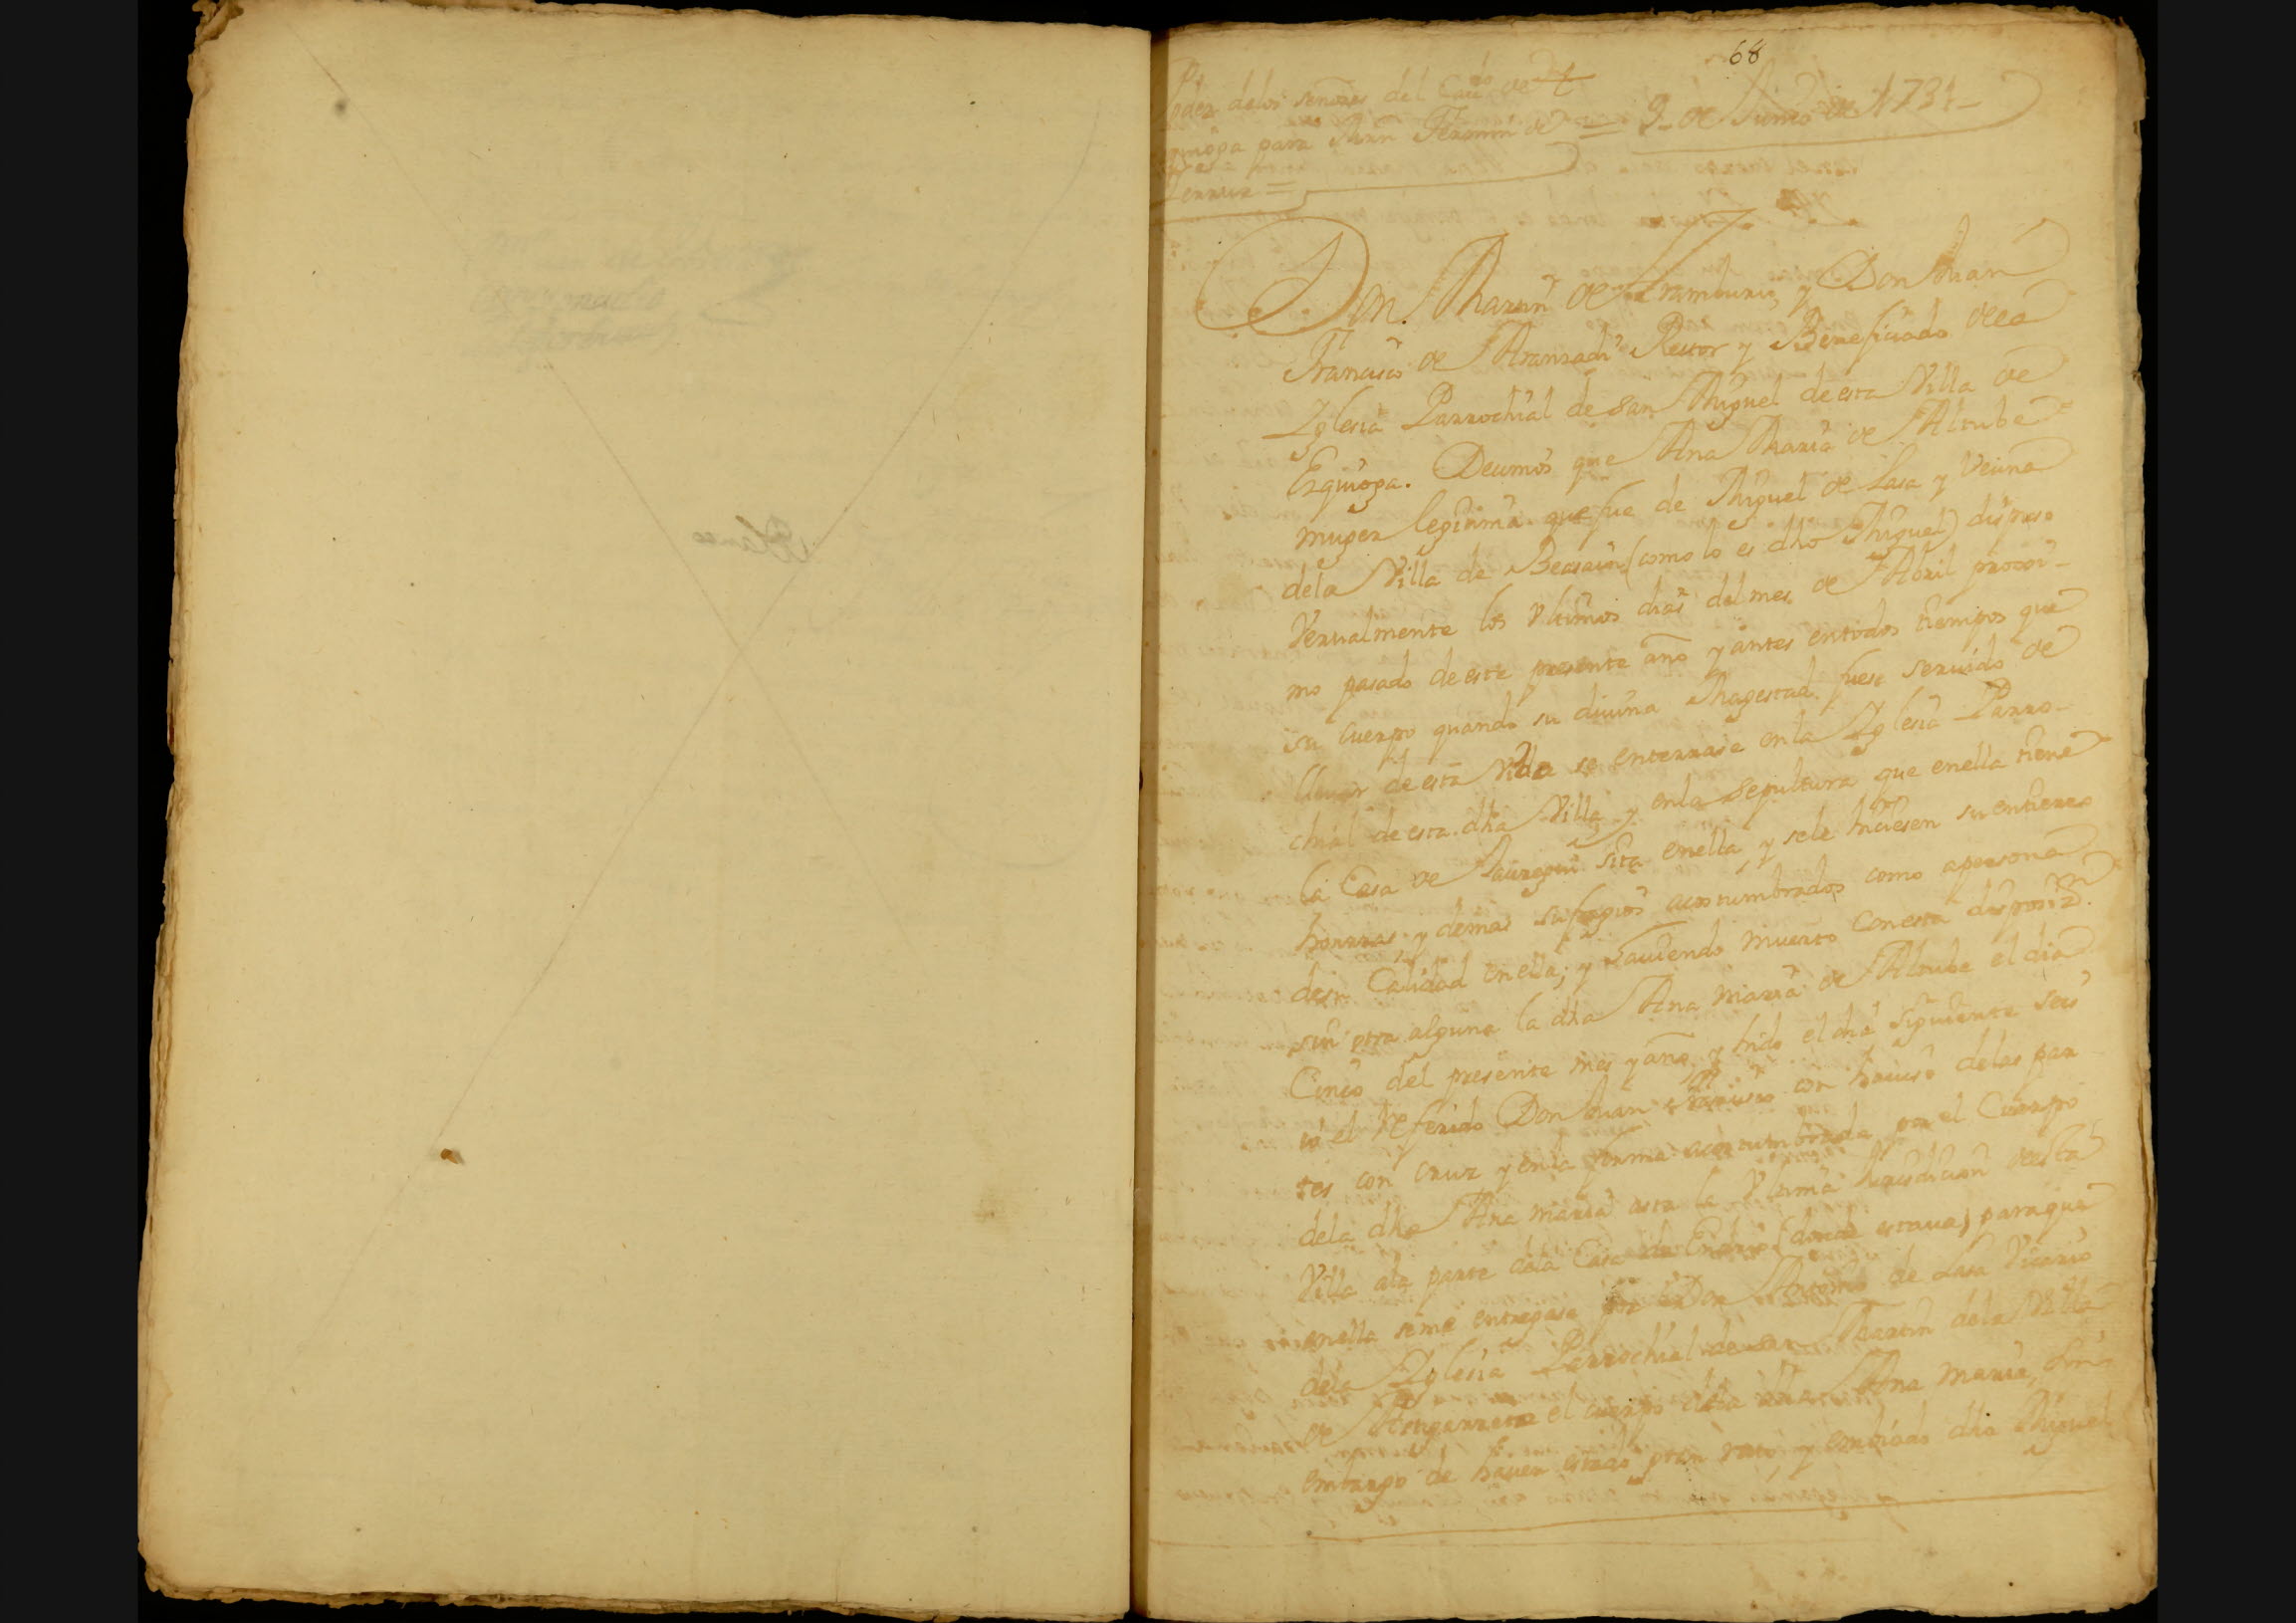 68
Poder delos señores del Cauᵈᵒ de
Ezquioga para Juan Fermin de = 9 de Junio de 1731
Don Martin de Aramburu, y Don Juan
Francisco de Aranzadi Rector y Beneficiado dela
Yglesia Parrochial de San Miguel de esta Villa de
Ezquioga. Decimos que Ana Maria de Alrube
muger legitima que fue de Miguel de Lasa y Vecina
dela Villa de Beasain (como lo es dho Miguel) dispuso
Vervalmente los Vltimos dias del mes de Abril proxi-
mo pasado de este presente año y antes entodos tiempos que
su cuerpo quando su diuina Magestad fuese seruido de
lleuar de esta Vida se enterrase enla Yglesia Parro-
chial de esta dha Villa, y enla sepultura que enella tiene
la Casa de Jauregui sita enella, y sele hiciesen su entierro
honrras, y demas sufragios acostumbrados como apersona
desu Calidad enella; y hauiendo muerto con esta disposiⁿ.
sin otra alguna la dha Ana Maria de Alrube el dia
Cinco del presente mes y año, y hido el dia siguiente seis
el referido Don Juan Francisco con hauiso delas par-
tes con cruz y enla forma acostumbrada por el Cuerpo
dela dha Ana Maria asta la Vltima Jurisdicion de esta
Villa ala parte dela Casa de (donde estaua) paraque
enella seme entregase por Don Antonio de Lasa Vicario
dela Yglesia Parrochial de San Martin dela Villa
de el cuerpo dela dha Ana Maria, sin
embargo de hauer estado gran rato, y embiado dho Miguel
Blanco